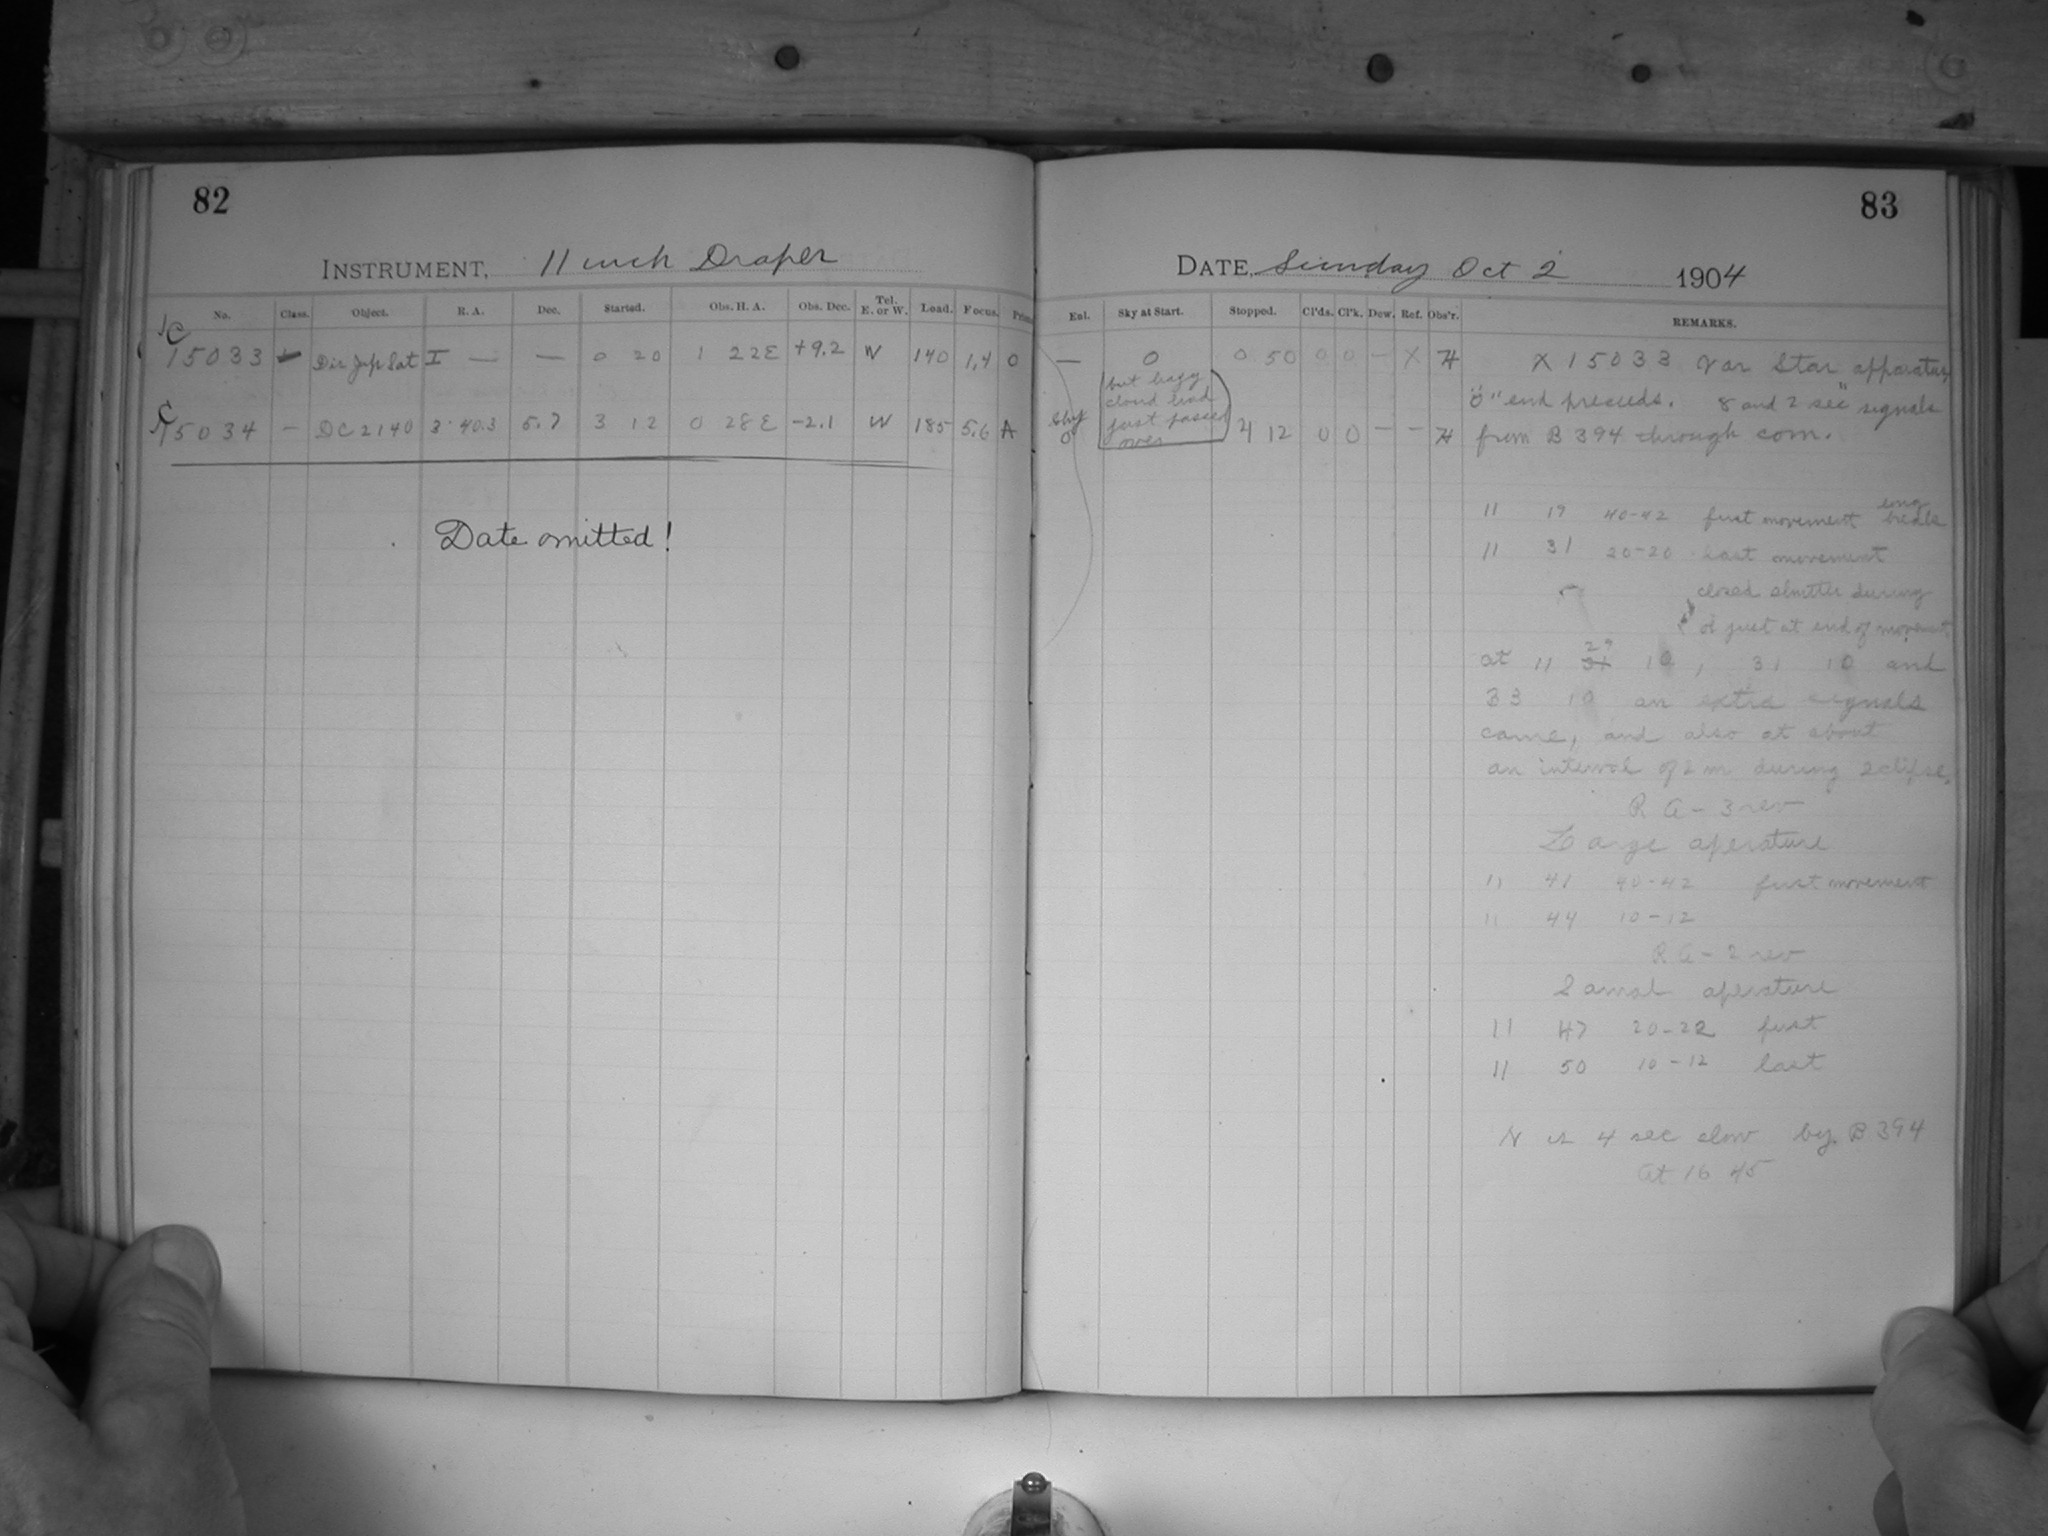 82
INSTRUMENT, 11 inch Draper
No. Class. Object. R. A. Dec. Started. Obs. H. A. Obs. Dec. Tel. E. or W. Load. Focus.
C
15033 Dir Jup Sat I — — 0 20 1 22E +9.2 W 140 1,4 0
C
15034 — DC 2140 3 40.3 5.7 3 12 0 28E -2.1 W 185 5.6 A
Date omitted!
83
DATE, Sunday Oct 2 1904
Exl. Sky at Start. Stopped. Cl'ds. Cl'k. Dew. Ref. Obs'r. REMARKS.
— 0 0 50 0 0 — X H X 15033 Var Star apparatus,
but hazy
cloud had
just passed
over
"0" end preceeds. 8 and 2 sec signals
Sky 0 4 12 0 0 — — H from B 394 through com.
11 19 40-42 first movement long
11 31 20-20 last movement
closed shutter during
or just at end of movement
at 11 29 10, 31 10 and
33 10 an extra signals
came, and also at about
an interval of 2 m during eclipse.
R A - 3 rev
Large aperature
11 41 40-42 first movement
11 44 10-12
R A - 2 rev
Samal aperature
11 47 20-22 first
11 50 10-12 last
N is 4 sec slow by B 394
At 16 45